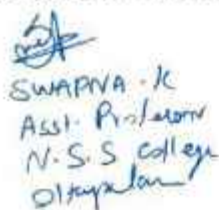 SWAPNA . K
Asst. Professor
N.S.S College
Ottapalam